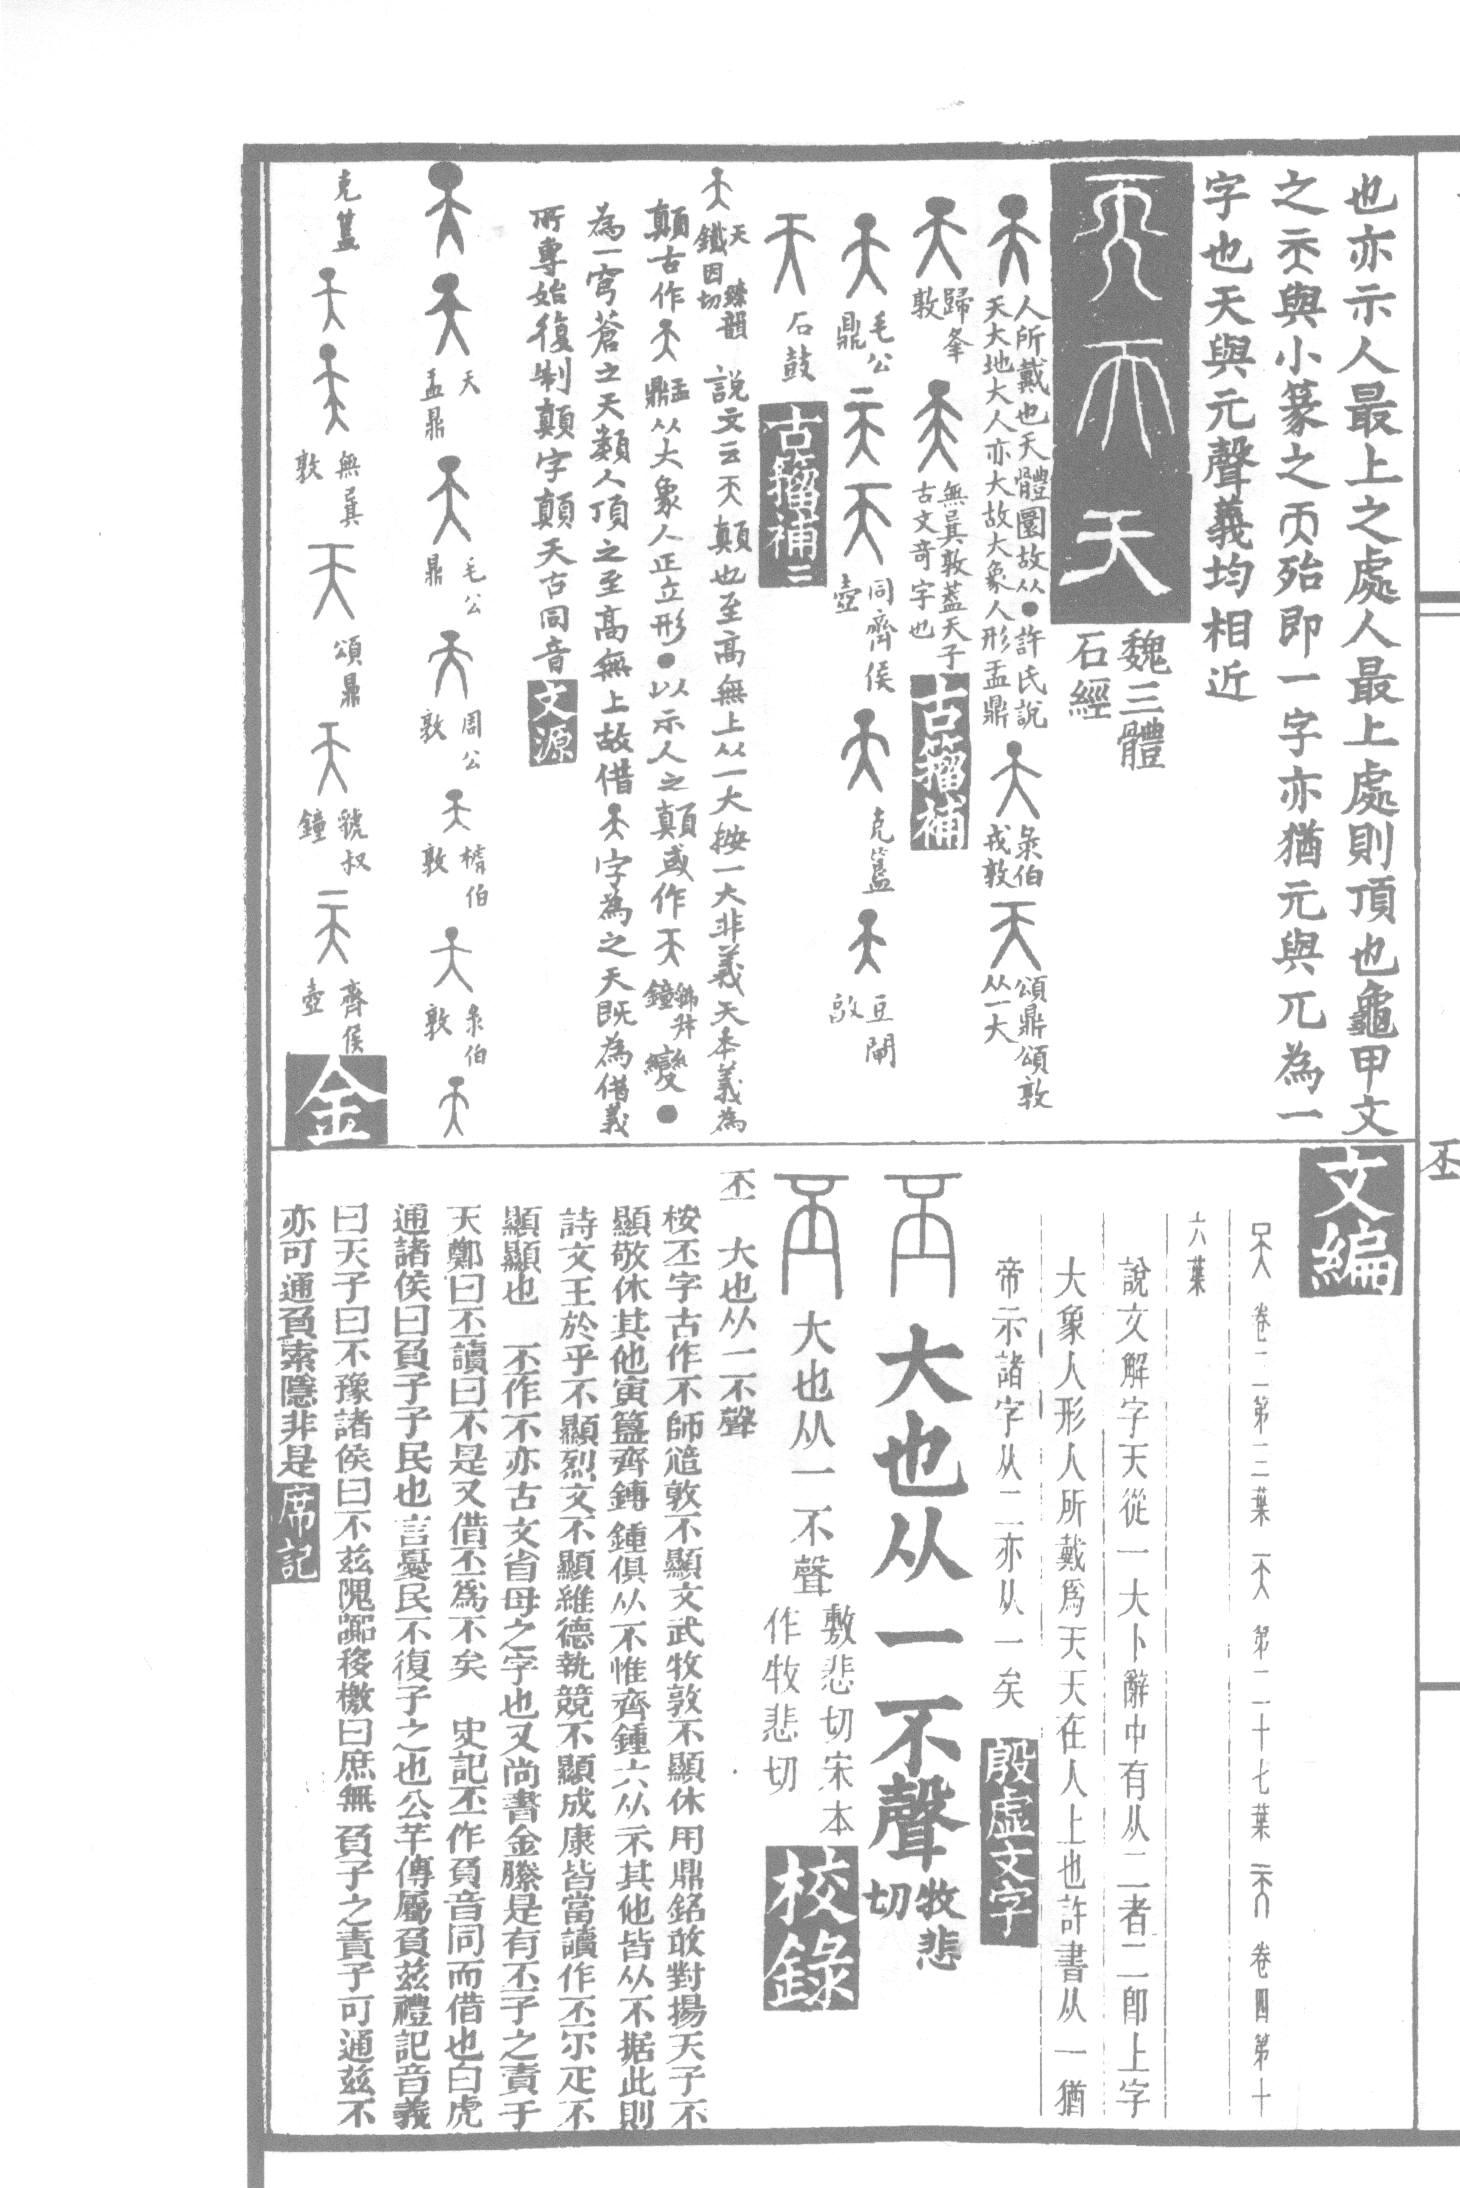 也亦示人最上之處人最上處則頂也龜甲文
之与小篆之殆即一字亦猶元與兀為一
字也天與元聲義均相近
魏三體
石經
人所戴也天體圜故从●許氏說
天大地大人亦大故大象人形盂鼎
彔伯
戎敦
頌鼎頌敦
从一大
歸夆
敦
無㠱敦蓋天子
古文奇字也
古籀補
毛公
鼎
同齊侯
壺
克簋
豆閉
敦
石鼓
古籀補二
天
鐵因切
臻韻
說文云天顛也至高無上从一大按一大非義天本義為
顛古作
盂
鼎
从大象人正立形●以示人之顛或作
鐘
變●
為一穹蒼之天類人頂之至高無上故借字為之天既為借義
所專始復制顛字顛天古同音
文源
天
盂鼎
毛公
鼎
周公
敦
伯
敦
彔伯
敦
克簋
無㠱
敦
頌鼎
虢叔
鐘
齊侯
壺
金
文編
卷二第三葉 第二十七葉 卷四第十
六葉
說文解字天從一大卜辭中有从二者二即上字
大象人形人所戴為天天在人上也許書从一猶
帝示諸字从二亦从一矣
殷虛文字
大也从一不聲
牧悲
切
大也从一不聲
敷悲切宋本
作牧悲切
校錄
丕 大也从二不聲
桉丕字古作不師敦不顯文武牧敦不顯休用鼎銘敢對揚天子不
顯敬休其他寅簋齊鎛鍾俱从不惟齊鍾六从示其他皆从不据此則
詩文王於乎不顯烈文不顯維德執競不顯成康皆當讀作丕尔疋不
顯顯也 丕作不亦古文省母之字也又尚書金縢是有丕子之責于
天鄭曰丕讀曰不是又借丕為不矣 史記丕作負音同而借也白虎
通諸侯曰負子子民也言憂民不復子之也公羊傳屬負茲禮記音義
曰天子曰不豫諸侯曰不茲隗囂移檄曰庶無負子之責子可通茲不
亦可通負索隱非是
席記
丕